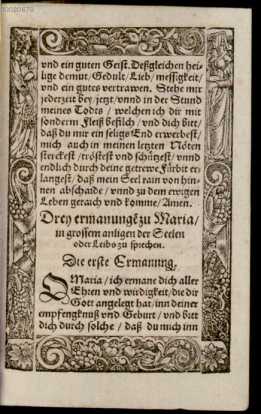 vnd ein guten Geist. Deßgleichen hei-
lige demut/ Gedult/ Lieb/ messigkeit/
vnd ein gutes vertrawen. Stehe mir
jederzeit bey/ jetzt/ vnnd in der Stund
meines Todts / welchen ich dir mit
sondern Fleiß befilch/ vnd dich bitt/
daß du mir ein seligs End erwerbest/
mich auch in meinen letzten Nöten
sterckest/ tröstest vnd schützest/ vnnd
endlich durch deine getrewe Fürbit er-
langest/ daß mein Seel rain von hin-
nen abschaide / vnnd zu dem ewigen
Leben geraich vnd komme/ Amen.
Drey ermanungē zu Maria/
in grossem anligen der Seelen
oder Leibs zu sprechen.
Die erste Ermanung,
O Maria / ich ermane dich aller
Ehren vnd wirdigkeit/ die dir
Gott angelegt hat/ inn deiner
empfengknuß vnd Geburt/ vnd bitt
dich durch solche / daß du mich inn